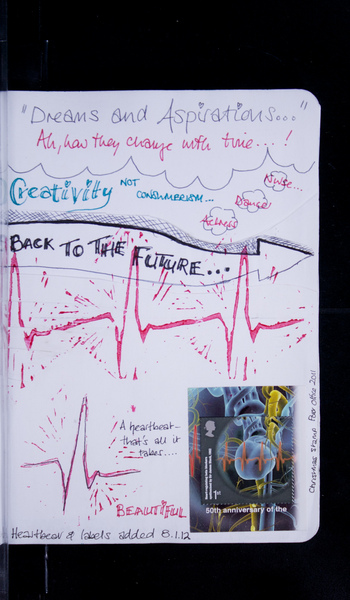 "Dreams and Aspirations..."
Ah, how they change with time....!
Nurse...
Creativity NOT
CONSUMERISM...
Dancer
Actress
BACK TO THE FUTURE...
A heartbeat
that's all it
takes....
BEAUTIFUL
1st
50th anniversary of the
Heartbeat & labels added 8.1.12
Christmas Stamp Post Office 2011